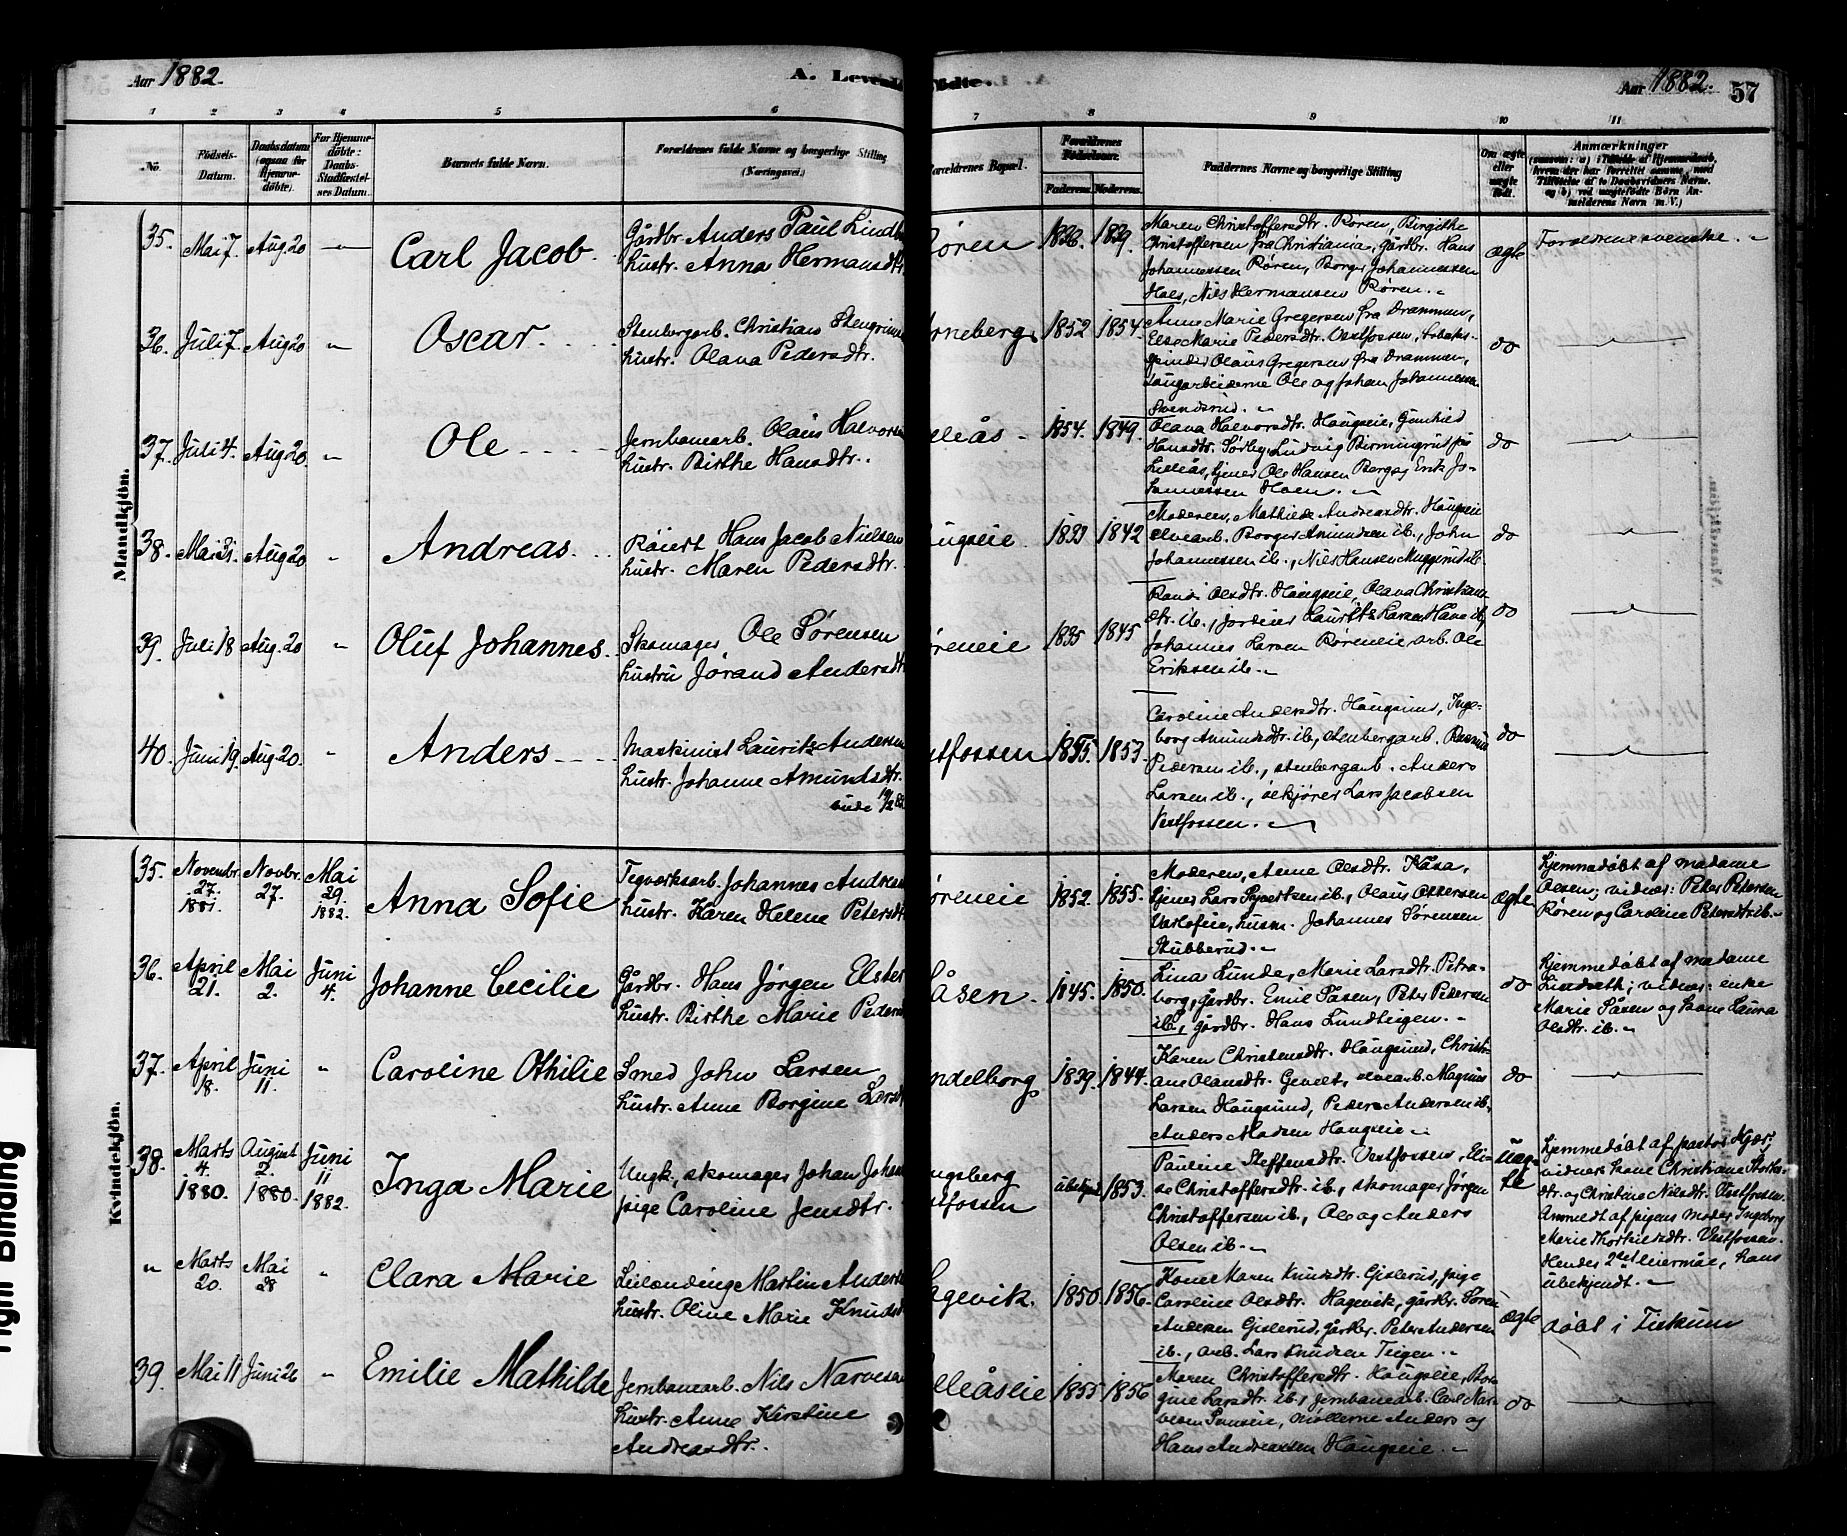 Aar 1882.
A. Levende
Fødte.
Aar 1882.
57
1 2 3 4 5 6 7 8 9 10 11
No.
Fødsels-
Datum.
Daabsdatum
(ogsaa for
Hjemme-
døbte).
For Hjemme-
døbte:
Daabs-
Stadfæstel-
ses Datum.
Barnets fulde Navn.
Forældrenes fulde Navne og borgerlige Stilling
(Næringsvei.)
Forældrenes Bopæl.
Forældrenes
Fødselsaar.
Faderens. Moderens.
Faddernes Navne og borgerlige Stilling
Om ægte
eller
uægte
født.
Anmærkninger
(saasom: a) i Tilfælde af Hjemmedaab,
hvem der har forrettet samme, med
Tilføielse af to Daabsvidners Navne,
og b) ved uægtefødte Børn An-
melderens Navn m. V.)
Mandkjøn.
35. Mai 7. Aug 20 Carl Jacob.
Gårdbr. Anders Paul Lindb
hustr. Anna Hermansdtr.
Røren 1836. 1839.
Maren Christoffersdtr. Røren, Birgithe
Christoffersen fra Christiania, gårdbr. Hans
Johannessen Røren, Borger Johannessen
Hals, Nils Hermansen Røren.
ægte
Forældrene svenske.
36. Juli 7. Aug 20 Oscar.
Stenbergarb. Christian Stengrims
hustr. Olava Pedersdtr.
rneberg 1852 1854.
Anne Marie Gregersen fra Drammen,
Else Marie Pedersdtr. Vestfossen, tobaks-
spinder Olaus Gregersen fra Drammen,
saugarbeiderne Ole og Johan Johannessen
Svendsrud.
do
37. Juli 4. Aug 20. Ole
Jernbanearb. Olaus Halvorsen
hustr. Birthe Hansdtr.
leås 1854. 1849.
Olava Halvorsdtr. Haugseie, Gunhild
Hansdtr. Sørby, Ludvig Birmingrud på
Lilleås, tjener Ole Hansen Berg og Erik Jo-
hannessen Hoen.
do
38. Mai 31. Aug 20 Andreas.
Røiert Hans Jacob Nielsen
hustr. Maren Pedersdtr.
ugseie 1833 1842
Moderen, Mathilde Andreasdtr. Haugseie
elvearb. Borger Amundsen ib., John
Johannessen ib., Nils Hansen Muggerud ib.
do
39. Juli 18 Aug. 20 Oluf Johannes.
Skomager Ole Sørensen
hustru Jørand Andersdtr
øreneie 1835 1845
Randi Olsdtr. Haugseie, Olava Christians
dtr. ib., jordeier Lauritz Larsen Haug ib.
Johannes Larsen Røreneie arb. Ole
Eriksen ib.
do
40. Juni 19. Aug. 20. Anders
Maskinist Lauritz Andersen
hustr. Johanne Amundsdtr.
stfossen 1855. 1853.
Caroline Andersdtr. Haugsund, Inge-
borg Amundsdtr. ib., stenbergarb. Rasmus
Pedersen ib., stenbergarb. Anders
Larsen ib., ølkjører Lars Jacobsen
Vestfossen.
do
Kvindekjøn.
35. Novembr. 27. 1881. Novbr. 27. Mai 29. 1882. Anna Sofie
Teglværksarb. Johannes Andreas
hustr. Karen Helene Petersdtr
øreneie 1852. 1855.
Moderen, Anne Olsdtr. Kasa,
tjener Lars Syvertsen ib., Olaus Ottersen
husm. Johannes Sørensen
Stubberud.
ægte
hjemmedøbt af madame
Olsen; vidner: Peter Petersen
Røren og Caroline Petersdtr. ib.
36. April 21. Mai 2. Juni 4. Johanne Cecilie
Gårdbr. Hans Jørgen Elster
hustr. Birthe Marie Peders
åsen. 1845. 1850.
Lina Lunde, Marie Larsdtr. Petra-
borg, gårdbr. Emil Fåsen, Peter Pedersen
ib., gårdbr. Hans Lundteigen.
do
hjemmedøbt af madame
Lindseth; vidner: enke
Marie Fåsen og kone Laura
Olsdtr. ib.
37. April 18. Juni 11. Caroline Othilie
Smed John Larsen
hustr. Anne Borgine Larsdt
ndelborg 1839. 1844.
Karen Christensdtr. Haugsund, Christi-
ane Olausdtr. elvearb. Magnus
Larsen Haugsund, Peder Andersen ib.
Anders Madsen Haugseie
do
38. Marts 4. 1880. August 2. 1880. Juni 11 1882. Inga Marie
Ungk., skomager Johan Johan
pige Caroline Jensdtr.
ngsberg
stfossen
ubekjendt 1853.
Pauline Steffensdtr. Vestfossen, Eli-
se Christoffersdtr. ib., skomager Jørgen
Christoffersen ib., Ole og Anders
Olsen ib.
uæg-
te
hjemmedøbt af pastor Kjær;
vidner kone Christiane Thorkels-
dtr. og Christine Nilsdtr. Vestfossen.
Anmeldt af pigens moder Ingeborg
Marie Thorkildsdtr. Vestfossen.
Hendes 2det leiermål, hans
ubekjendt.
" Marts 20. Mai 28 Clara Marie
Leilænding Martin Anders
hustr. Oline Marie Knudsd
gevik. 1850. 1856.
Kone Maren Knudsdtr. Gislerud, pige
Caroline Olsdtr. Hagevik, gårdbr. Søren
Andersen Gislerud, gårdbr. Peter Andersen
ib., arb. Lars Knudsen Teigen.
ægte
døbt i Fiskum
39. Mai 11 Juni 26 Emilie Mathilde
Jernbanearb. Nils Narvesen
hustr. Anne Kirstine
Andreasdtr.
lleåseie 1855 1856
Maren Christoffersdtr. Haugseie, Bor-
gine Larsdtr. ib., jernbanearb. Carl Nar-
vesen møllerne Anders og
Hans Andreassen Haugseie.
do
Tight Binding